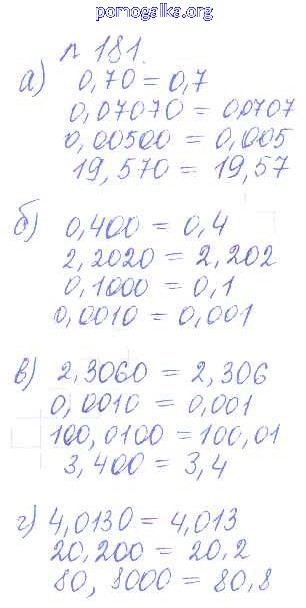 pomogalka.org
n 181.
а) 0,70 = 0,7
0,07070 = 0,0707
0,00500 = 0,005
19,570 = 19,57
б) 0,400 = 0,4
2,2020 = 2,202
0,1000 = 0,1
0,0010 = 0,001
в) 2,3060 = 2,306
0,0010 = 0,001
100,0100 = 100,01
3,400 = 3,4
г) 4,0130 = 4,013
20,200 = 20,2
80,8000 = 80,8